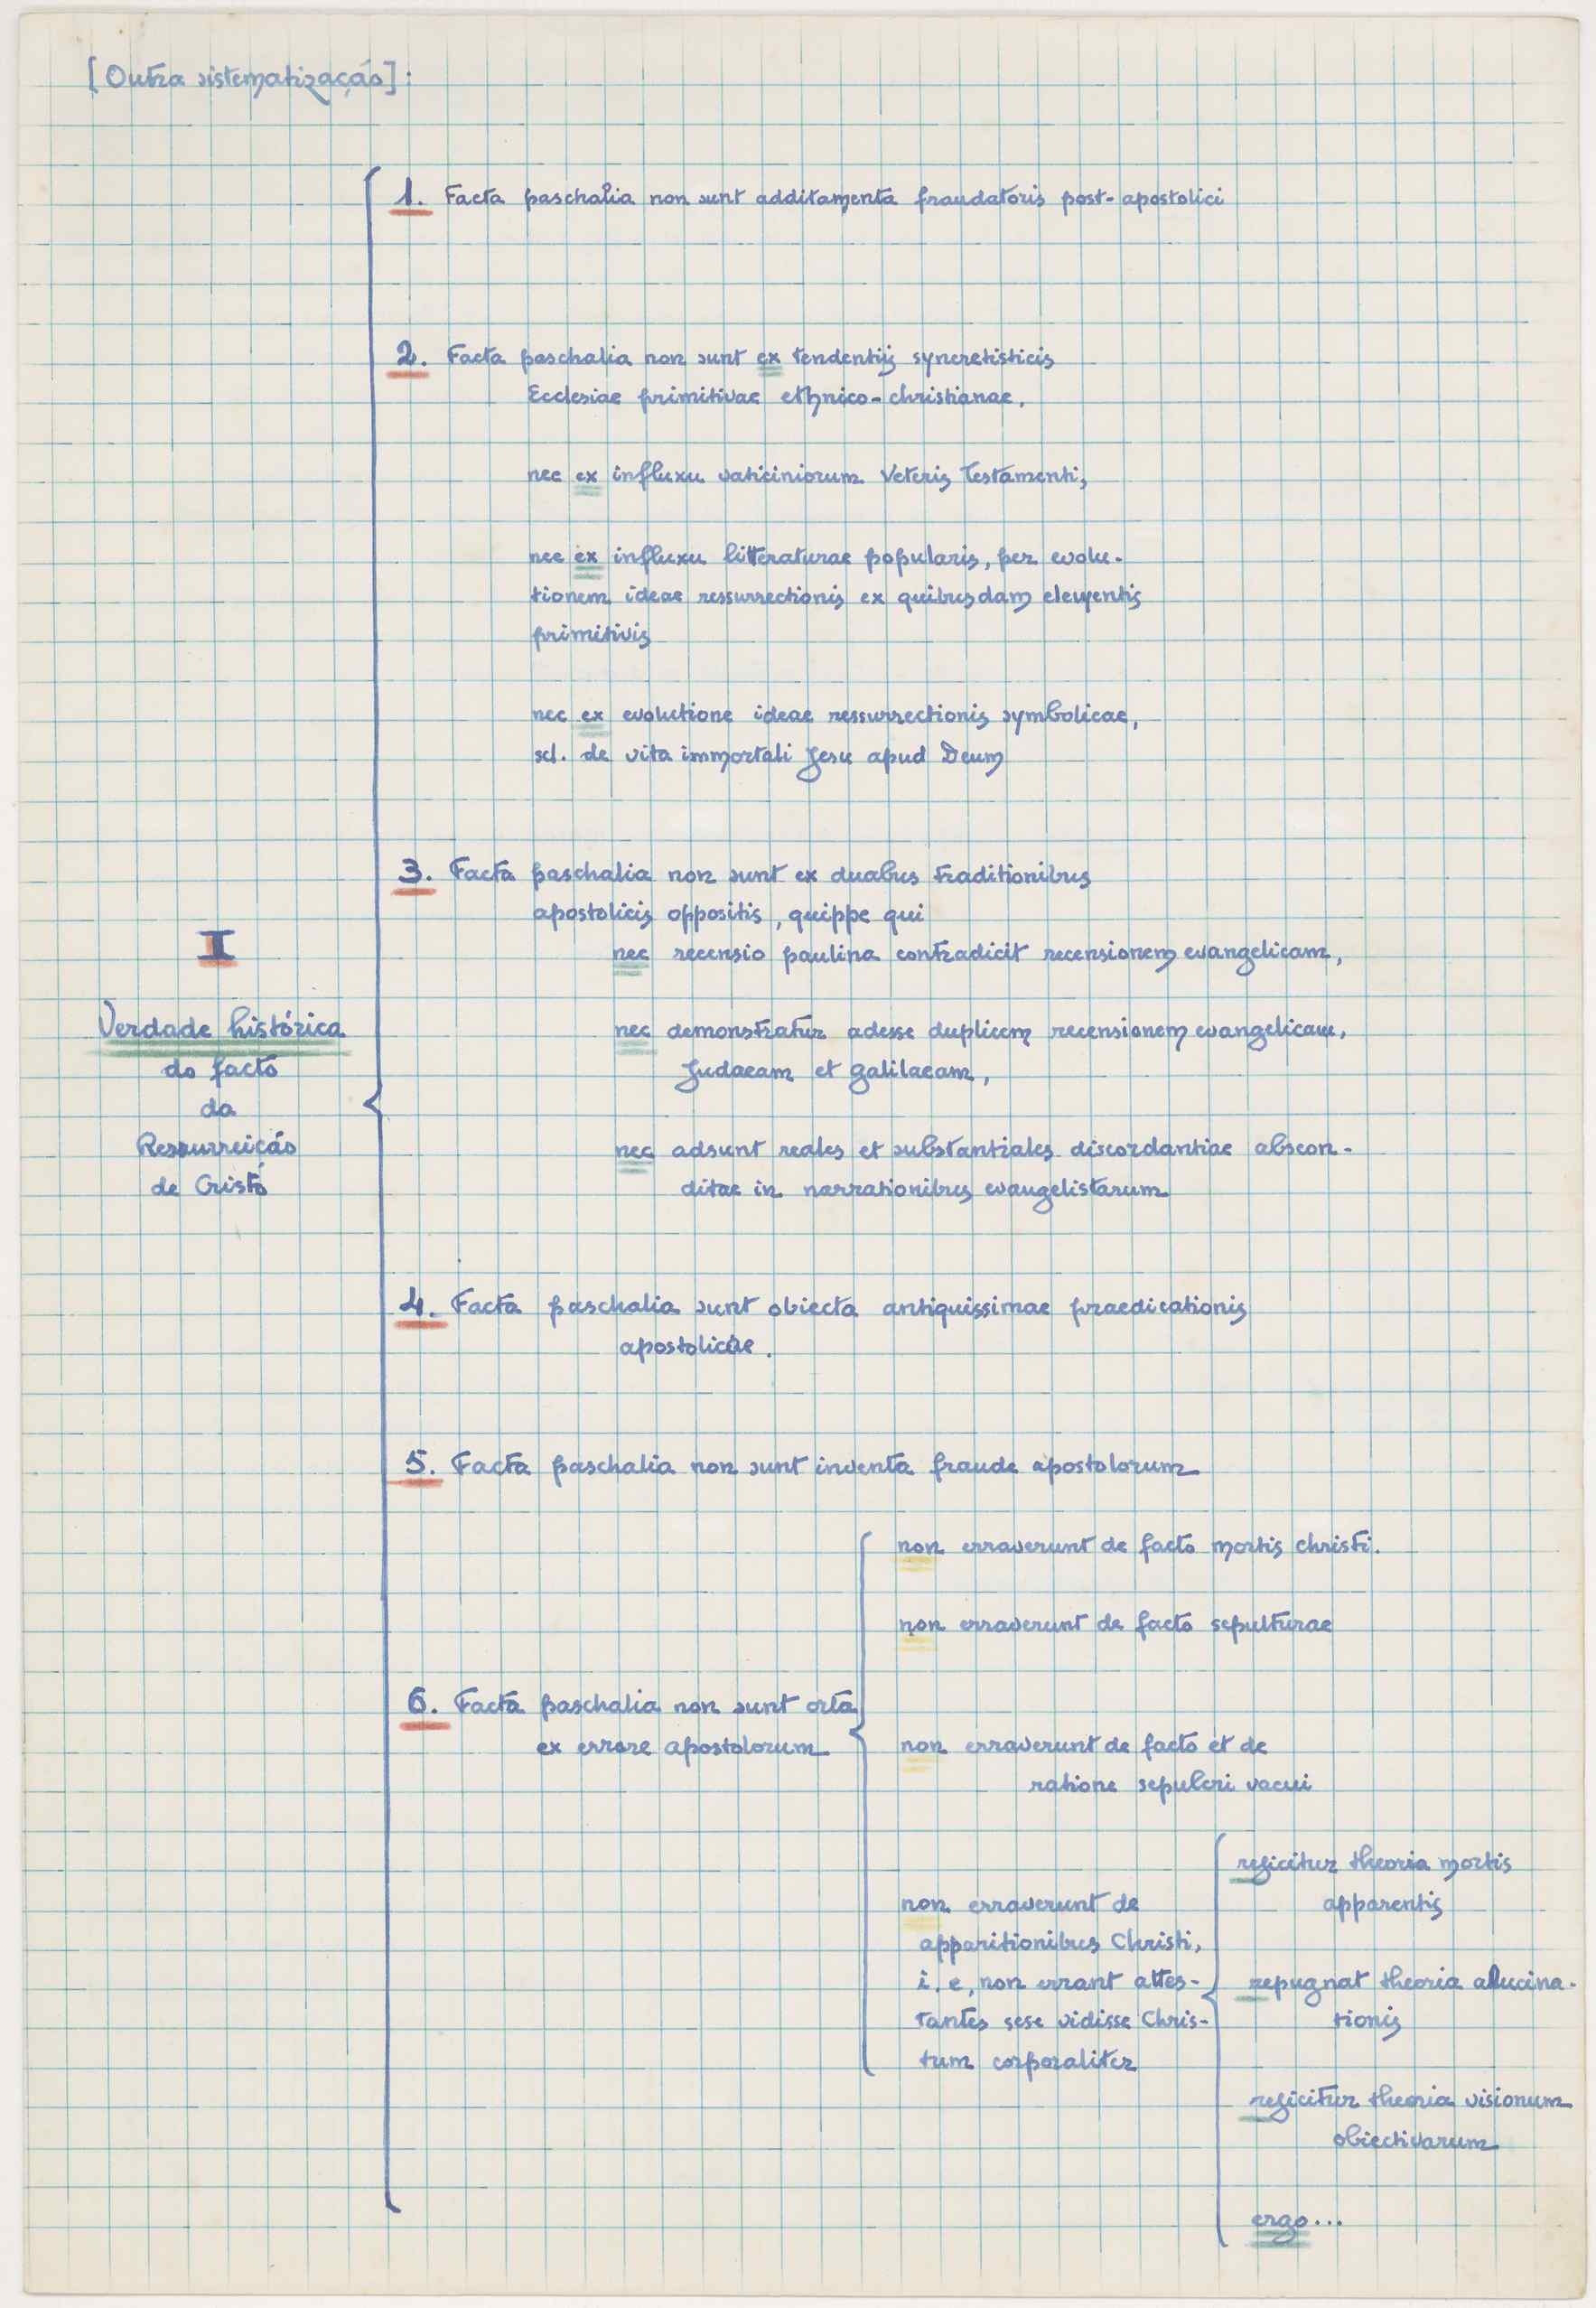 [Outra sistematização]:
I
Verdade histórica
do facto
da
Ressurreição
de Cristo
1. Facta paschalia non sunt additamenta fraudatoris post-apostolici
2. Facta paschalia non sunt ex tendentiis syncretisticis
Ecclesiae primitivae ethnico-christianae,
nec ex influxu vaticiniorum Veteris Testamenti,
nec ex influxu litteraturae popularis, per evolu-
tionem ideae ressurrectionis ex quibusdam elementis
primitivis
nec ex evolutione ideae ressurrectionis symbolicae,
scl. de vita immortali Jesu apud Deum
3. Facta paschalia non sunt ex duabus traditionibus
apostolicis oppositis, quippe qui
nec recensio paulina contradicit recensionem evangelicam,
nec demonstratur adesse duplicem recensionem evangelicam,
Judaeam et Galilaeam,
nec adsunt reales et substantiales discordantiae abscon-
ditae in narrationibus evangelistarum
4. Facta paschalia sunt obiecta antiquissimae praedicationis
apostolicae.
5. Facta paschalia non sunt inventa fraude apostolorum
6. Facta paschalia non sunt orta
ex errore apostolorum
non erraverunt de facto mortis Christi.
non erraverunt de facto sepulturae
non erraverunt de facto et de
ratione sepulcri vacui
non erraverunt de
apparitionibus Christi,
i.e, non errant attes-
tantes sese vidisse Chris-
tum corporaliter
rejicitur theoria mortis
apparentis
repugnat theoria alucina-
tionis
rejicitur theoria visionum
obiectivarum
ergo...